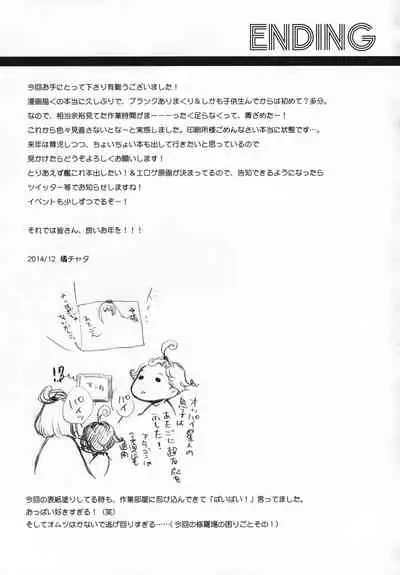 ENDING
今回お手にとって下さり有難うございました！
漫画描くの本当に久しぶりで、ブランクありまくり＆しかも子供生んでからは初めて？多分。
なので、相当余裕見てた作業時間がまーーーったく足らなくって、青ざめたー！
これから色々見直さないとなーと実感しました。印刷所様ごめんなさい本当に状態です…。
来年は育児しつつ、ちょいちょい本も出して行きたいと思っているので
見かけたらどうぞよろしくお願いします！
とりあえず艦これ本出したい！＆エロゲ原画が決まってるので、告知できるようになったら
ツイッター等でお知らせしますね！
イベントも少しずつでるぞー！
それでは皆さん、良いお年を！！！
2014/12 橘チャタ
!?
パイッ
パイ
オッパイ星人の
息子は
あたごに超反応
でした！
今回の表紙塗りしてる時も、作業部屋に忍び込んできて「ぱいぱい！」言ってました。
おっぱい好きすぎる！（笑）
そしてオムツはかないで逃げ回りすぎる……（今回の修羅場の困りごとその１）